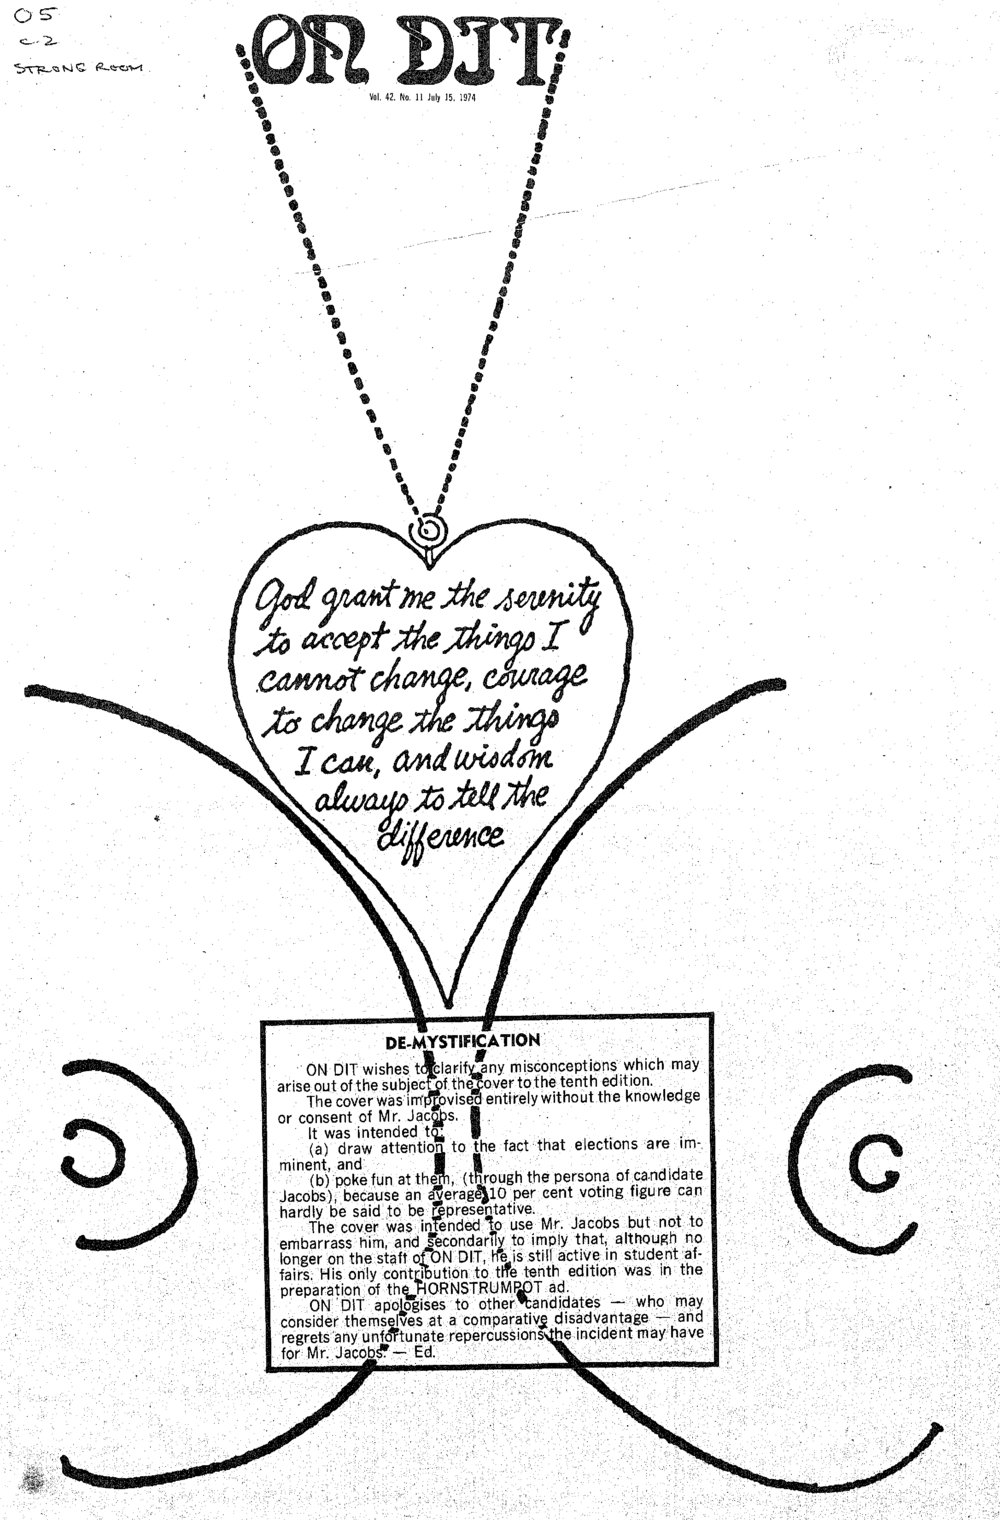 05
c.2
STRONG ROOM
ON DIT
Vol. 42. No. 11 July 15. 1974
God grant me the serenity
to accept the things I
cannot change, courage
to change the things
I can, and wisdom
always to tell the
difference
DE-MYSTIFICATION
ON DIT wishes to clarify any misconceptions which may
arise out of the subject of the cover to the tenth edition.
The cover was improvised entirely without the knowledge
or consent of Mr. Jacobs.
It was intended to:
(a) draw attention to the fact that elections are im-
minent, and
(b) poke fun at them, (through the persona of candidate
Jacobs), because an average 10 per cent voting figure can
hardly be said to be representative.
The cover was intended to use Mr. Jacobs but not to
embarrass him, and secondarily to imply that, although no
longer on the staff of ON DIT, he is still active in student af-
fairs. His only contribution to the tenth edition was in the
preparation of the HORNSTRUMPOT ad.
ON DIT apologises to other candidates — who may
consider themselves at a comparative disadvantage — and
regrets any unfortunate repercussions the incident may have
for Mr. Jacobs. — Ed.